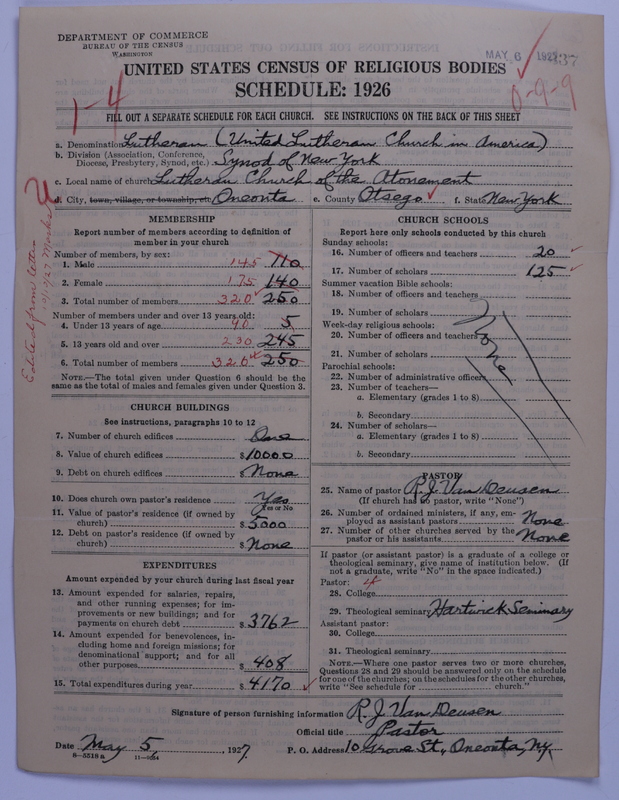 DEPARTMENT OF COMMERCE
BUREAU OF THE CENSUS
WASHINGTON
MAY 6 1927
UNITED STATES CENSUS OF RELIGIOUS BODIES
SCHEDULE: 1926
1-4
0-9-9
FILL OUT A SEPARATE SCHEDULE FOR EACH CHURCH. SEE INSTRUCTIONS ON THE BACK OF THIS SHEET
a. Denomination Lutheran (United Lutheran Church in America)
b. Division (Association, Conference, Diocese, Presbytery, Synod, etc.) Synod of New York
c. Local name of church Lutheran Church of the Atonement
d. City, town, village, or township, etc. Oneonta e. County Otsego f. State New York
Edited from letter
MEMBERSHIP
Report number of members according to definition of
member in your church
Number of members, by sex:
1. Male 145 110
2. Female 175 140
3. Total number of members 320 250
Number of members under and over 13 years old:
4. Under 13 years of age 90 5
5. 13 years old and over 230 245
6. Total number of members 320 250
NOTE.—The total given under Question 6 should be the
same as the total of males and females given under Question 3.
CHURCH BUILDINGS
See instructions, paragraphs 10 to 12
7. Number of church edifices One
8. Value of church edifices $10000
9. Debt on church edifices $None
10. Does church own pastor's residence Yes
Yes or No
11. Value of pastor's residence (if owned by
church) $5000
12. Debt on pastor's residence (if owned by
church) $None
EXPENDITURES
Amount expended by your church during last fiscal year
13. Amount expended for salaries, repairs,
and other running expenses; for im-
provements or new buildings; and for
payments on church debt $3762
14. Amount expended for benevolences, in-
cluding home and foreign missions; for
denominational support; and for all
other purposes $408
15. Total expenditures during year $4170
CHURCH SCHOOLS
Report here only schools conducted by this church
Sunday schools:
16. Number of officers and teachers 20
17. Number of scholars 125
Summer vacation Bible schools:
18. Number of officers and teachers
19. Number of scholars
Week-day religious schools:
20. Number of officers and teachers
21. Number of scholars
None
Parochial schools:
22. Number of administrative officers
23. Number of teachers—
a. Elementary (grades 1 to 8)
b. Secondary
24. Number of scholars—
a. Elementary (grades 1 to 8)
b. Secondary
PASTOR
25. Name of pastor R. J. Van Deusen
(If church has no pastor, write "None")
26. Number of ordained ministers, if any, em-
ployed as assistant pastors None
27. Number of other churches served by the
pastor or his assistants None
If pastor (or assistant pastor) is a graduate of a college or
theological seminary, give name of institution below. (If
not a graduate, write "No" in the space indicated.)
Pastor:
28. College
29. Theological seminary Hartwick Seminary
Assistant pastor:
30. College
31. Theological seminary
NOTE.—Where one pastor serves two or more churches,
Questions 28 and 29 should be answered only on the schedule
for one of the churches; on the schedules for the other churches,
write "See schedule for church."
Signature of person furnishing information R. J. Van Deusen
Official title Pastor
Date May 5, 1927. P. O. Address 10 Grove St., Oneonta, N.Y.
8-5518 a 11-9264